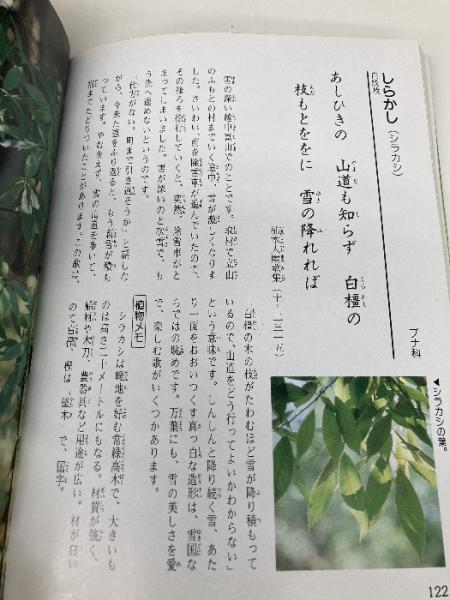 しらかし（シラカシ）
白橿
ブナ科
あしひきの　山道も知らず　白橿の
枝もとををに　雪の降れれば
柿本人麿歌集（十・二三一五）
雪の深い越中富山でのことです。取材で立山
のふもとの村まで行く途中、雪が激しくなりま
した。さいわい、前を除雪車が進んでいたので、
その後ろを徐行していくと、突然、除雪車がと
まってしまいました。雪が深いのと吹雪で、も
う先へ進めないというのです。
「仕方がない。町まで引き返そうか」と話しな
がら、今来た道をふり返ると、もう新雪が積も
っています。やむをえず、雪の山道を歩いて、
宿までたどりついたことがあります。この歌は、
「白橿の木の枝がたわむほど雪が降り積もって
いるので、山道をどう行ってよいかわからない」
という意味です。しんしんと降り続く雪、あた
り一面をおおいつくす真っ白な造形は、雪国な
らではの眺めです。万葉にも、雪の美しさを愛
で、楽しむ歌がいくつかあります。
植物メモ
シラカシは暖地を好む常緑高木で、大きいも
のは高さ二十メートルにもなる。材質が強く、
船材や木刀、農器具など用途が広い。材が白い
ので白橿。樫は「堅木」で、国字。
◀シラカシの葉。
122